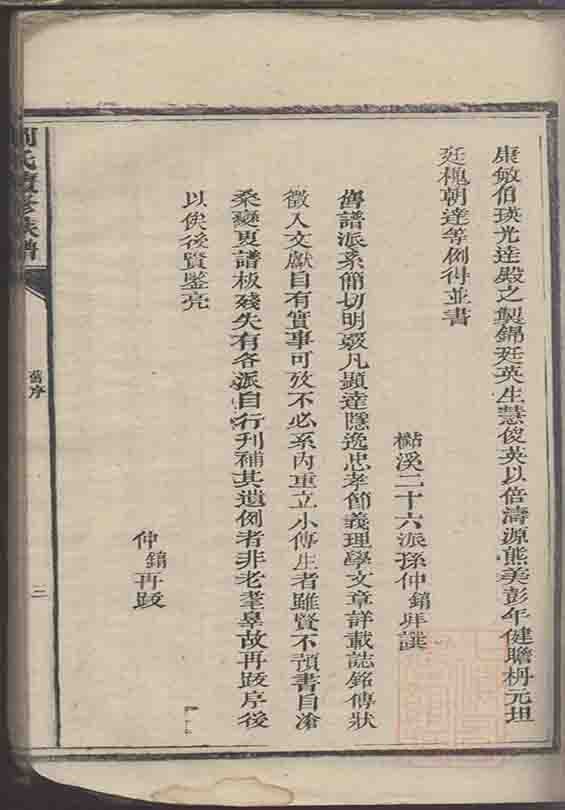 康敏伯瑛光達殿之製錦廷英生慧俊英以倍濤源熊美彭年健瞻枬元坦
廷槐朝達等例得並書
溪二十六派孫仲銷拜譔
舊譜派系簡切明覈凡顯達隱逸忠孝節義理學文章詳載誌銘傳狀
徵入文獻自有實事可攷不必系內重立小傳生者雖賢不預書自滄
桑變更譜板殘失有各派自行刊補其遺例者非老耄辠故再跋序後
以俟後賢鑒亮
仲銷再跋
周氏續修族譜
舊序
三